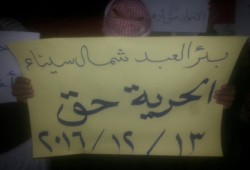 بئر العبد شمال سيناء
الحرية حق
٢٠١٦ / ١٢ / ١٣